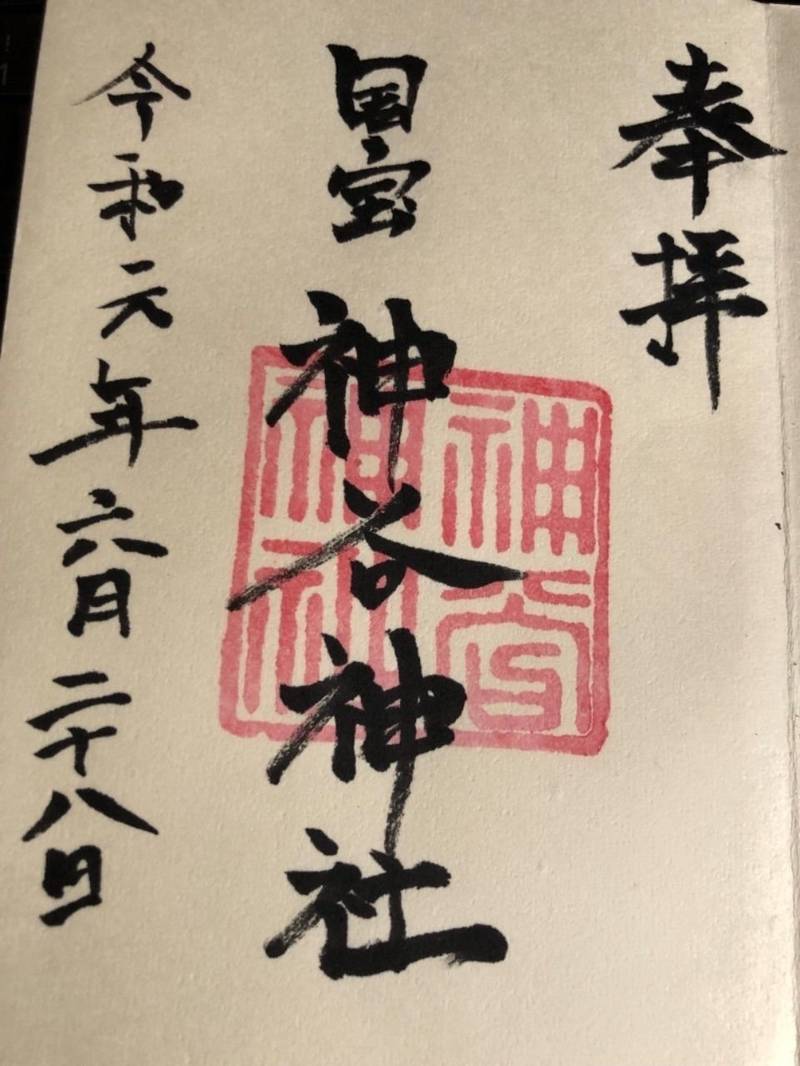 奉拝
国宝 神谷神社
神谷神社
令和元年六月二十八日